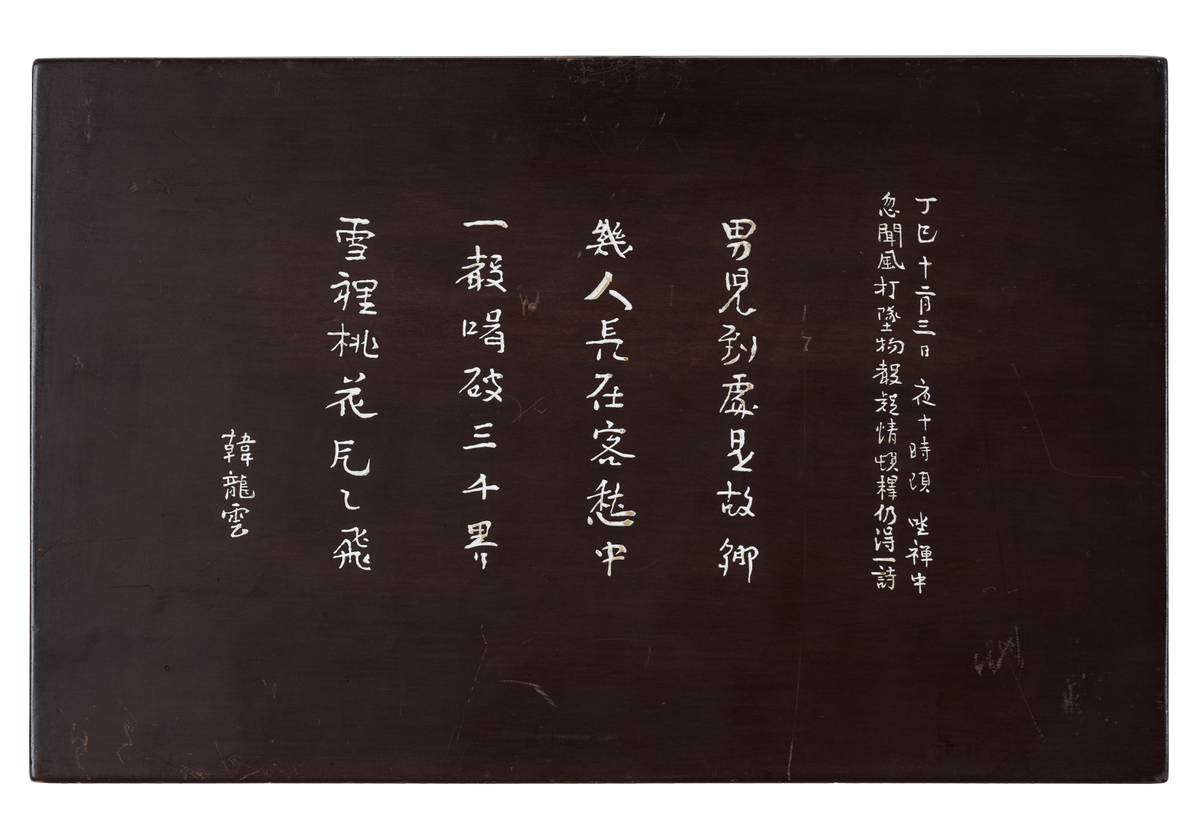 丁巳十二月三日 夜十時頃 坐禪中
忽聞風打墜物聲疑情頓釋仍得一詩
男兒到處是故鄕
幾人長在客愁中
一聲喝破三千界
雪裡桃花片々飛
韓龍雲